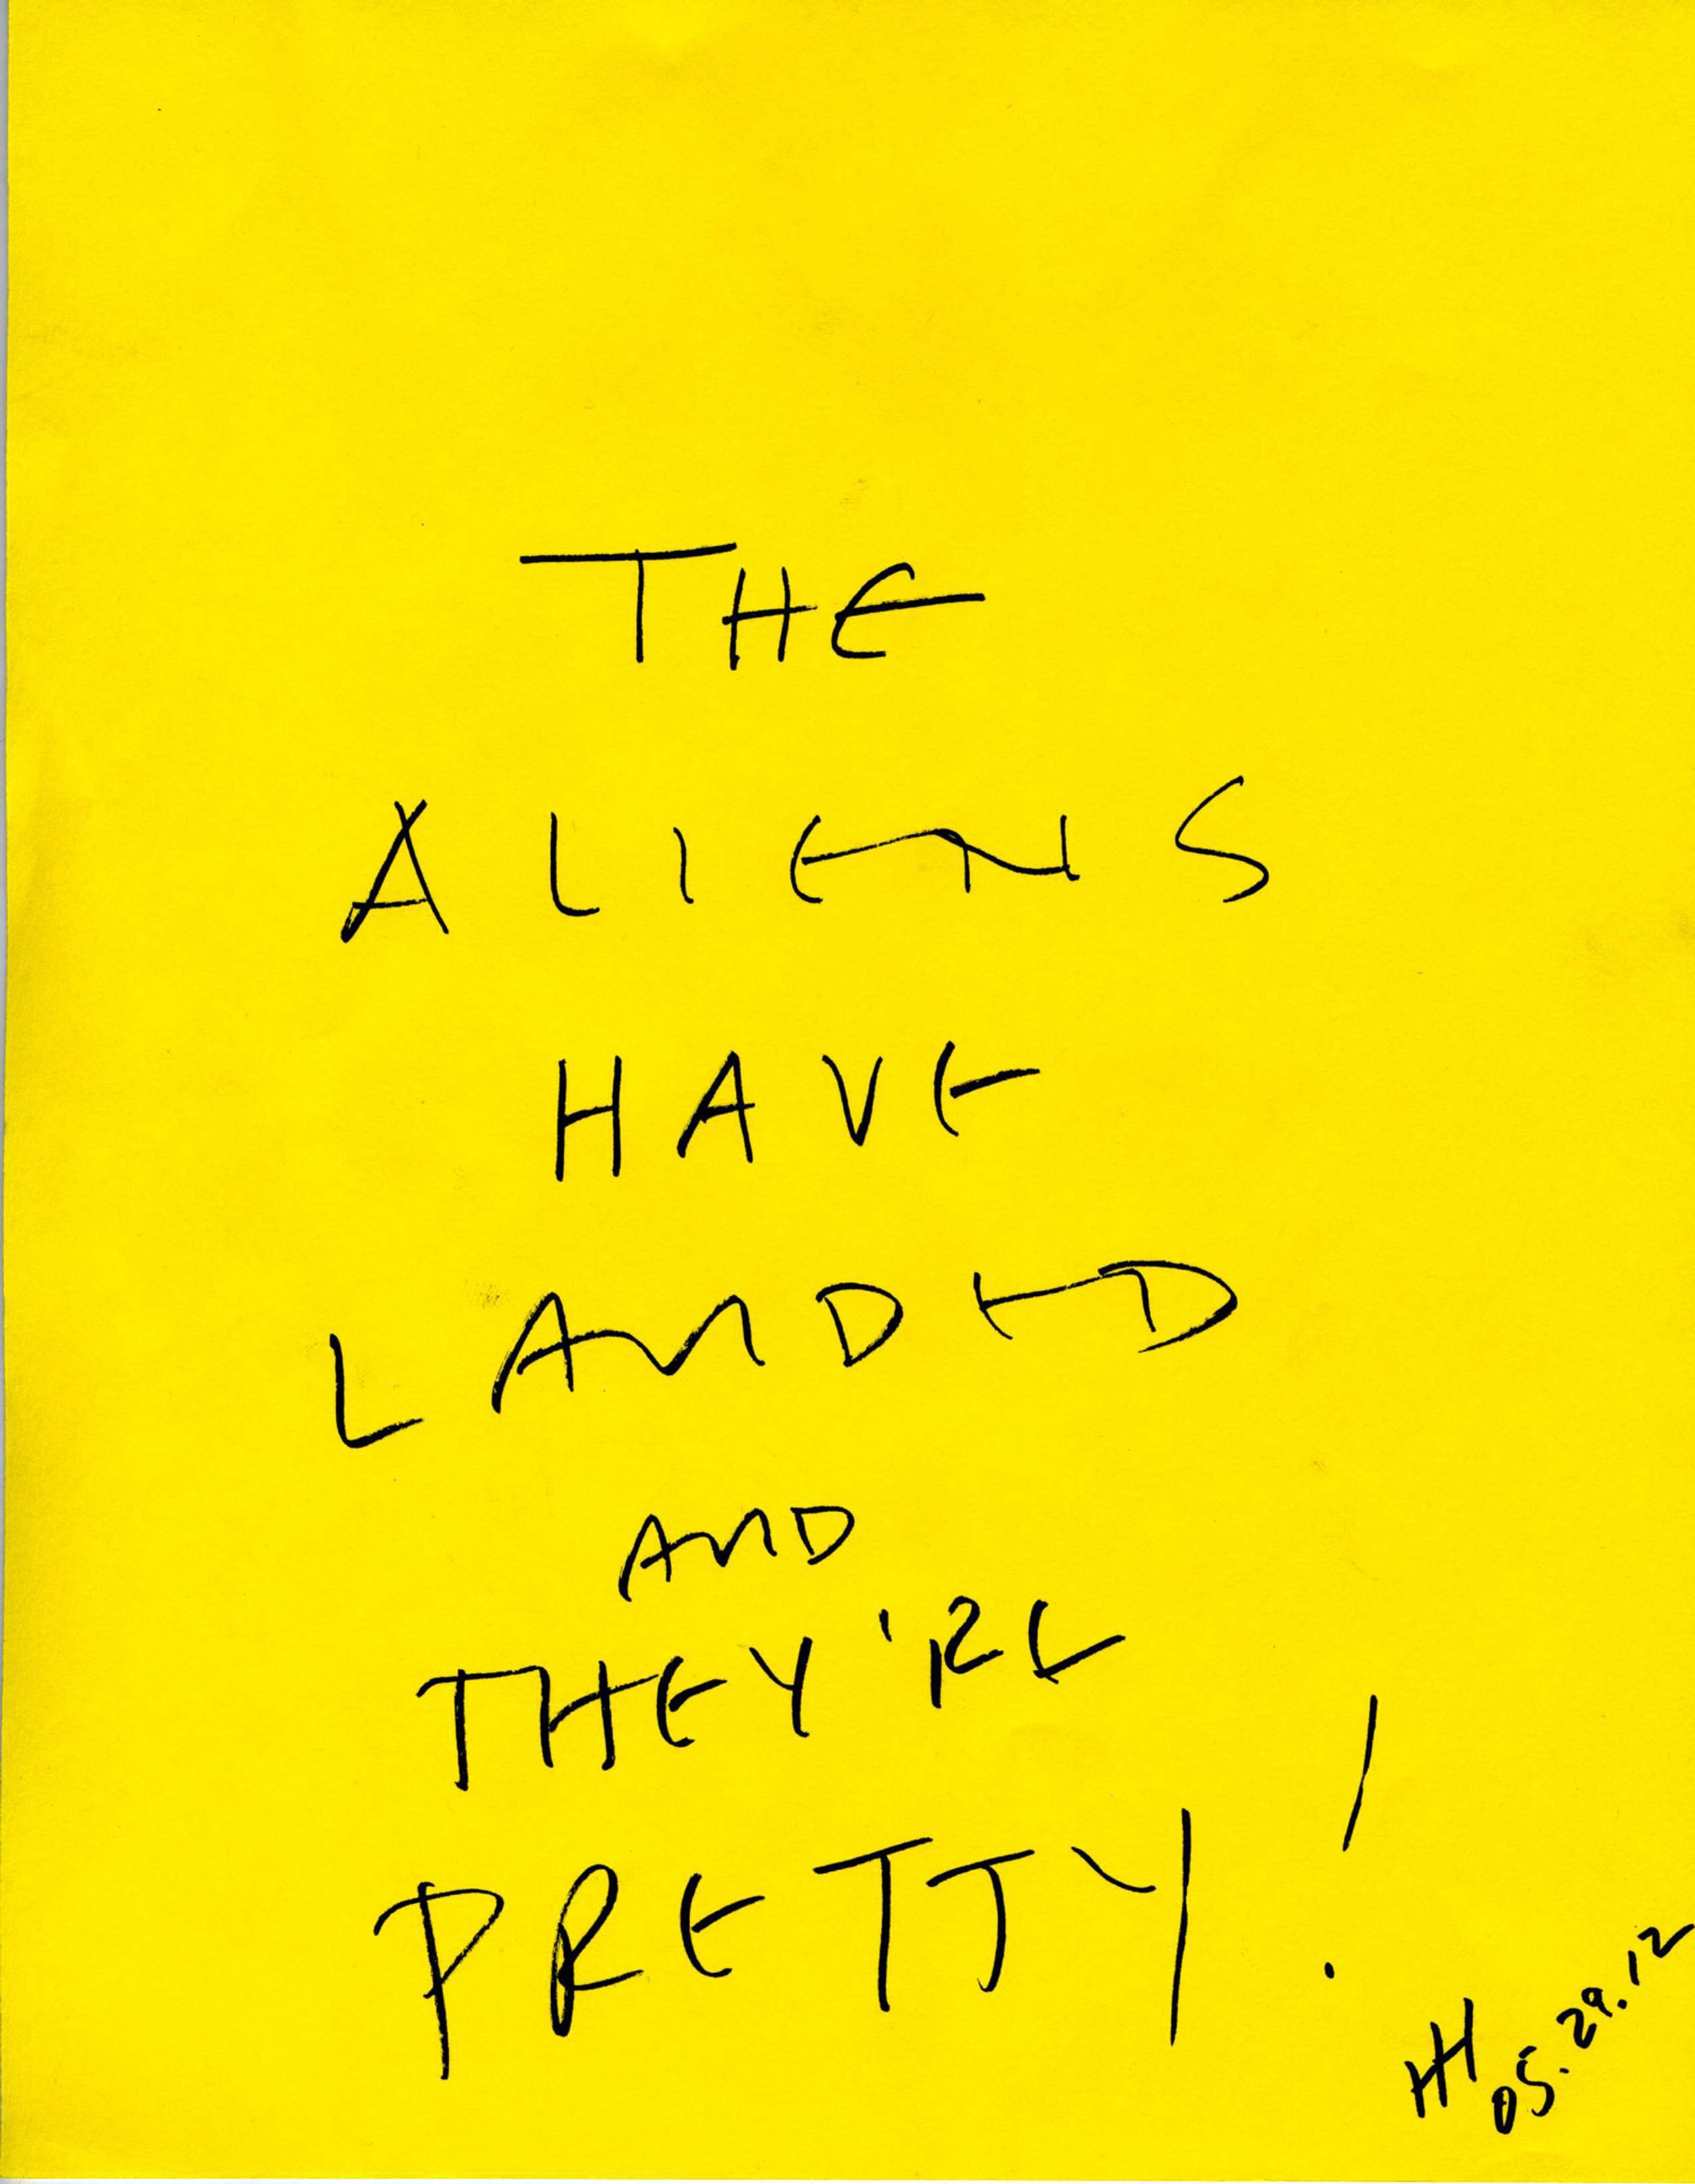 THE
ALIENS
HAVE
LANDED
AND
THEY'RE
PRETTY!
HH 05.29.12